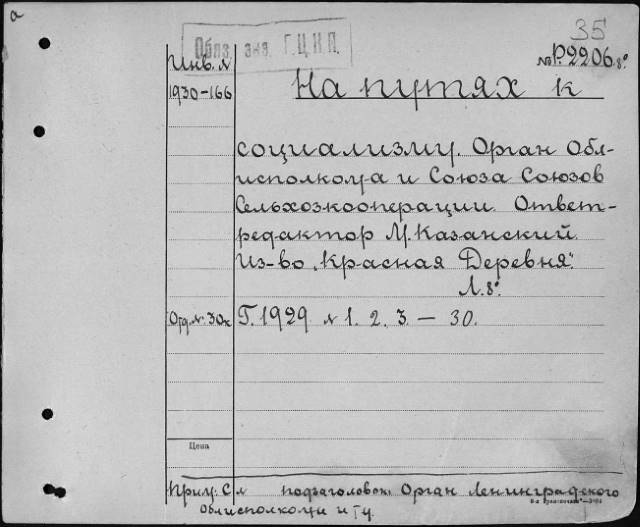 а
35
Обяз. экз. Г.Ц.К.П.
№P.2206.8°
Инв. №
1930-166
На путях к
социализму. Орган Обл-
исполкома и Союза Союзов
Сельхозкооперации. Ответ-
редактор М. Казанский.
Из-во „Красная Деревня".
Л. 8°.
Отд. №. 30к
Г. 1929 № 1. 2. 3. — 30.
Цена
Прим: С № подзаголовок: Орган Ленинградского
Облисполкома и т.д.